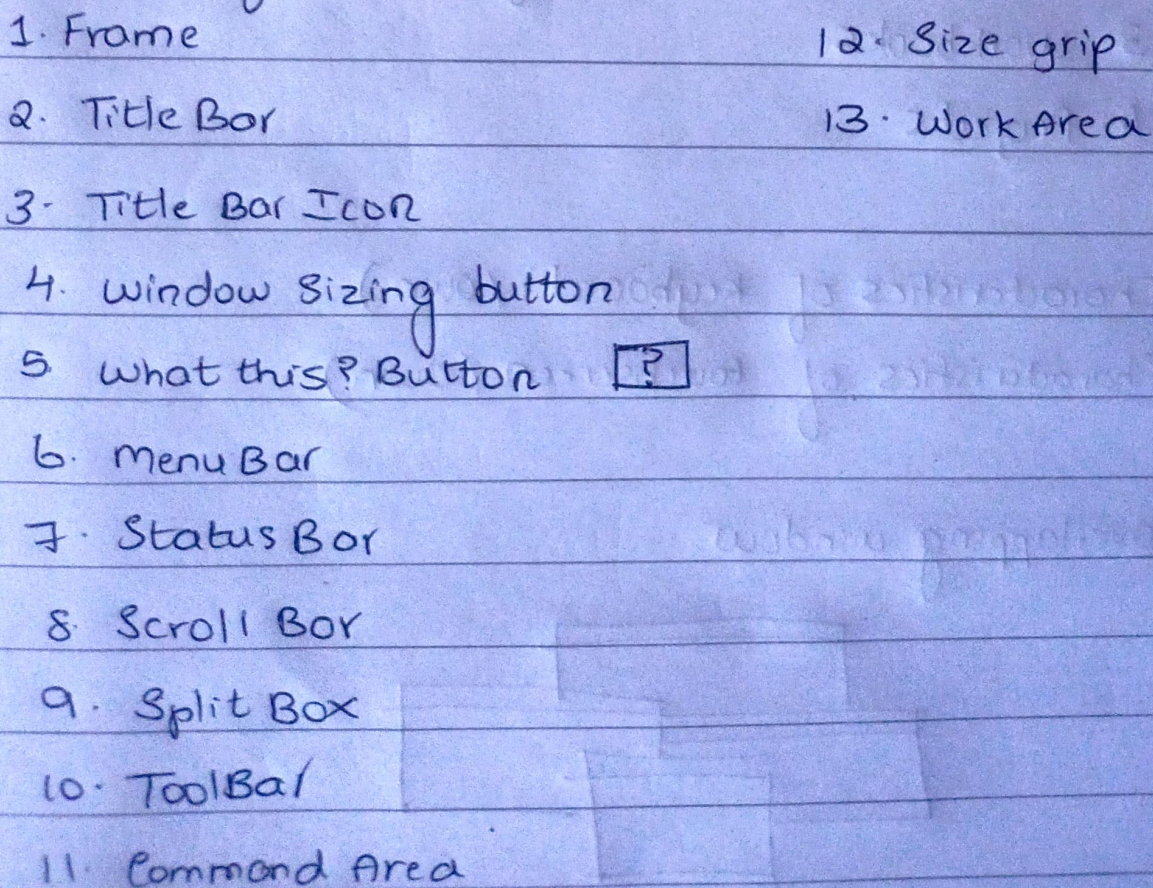 1. Frame
2. Title Bar
3. Title Bar Icon
4. Window Sizing button
5. What this? Button ?
6. Menu Bar
7. Status Bar
8. Scroll Bar
9. Split Box
10. ToolBar
11. Command Area
12. Size grip
13. Work Area